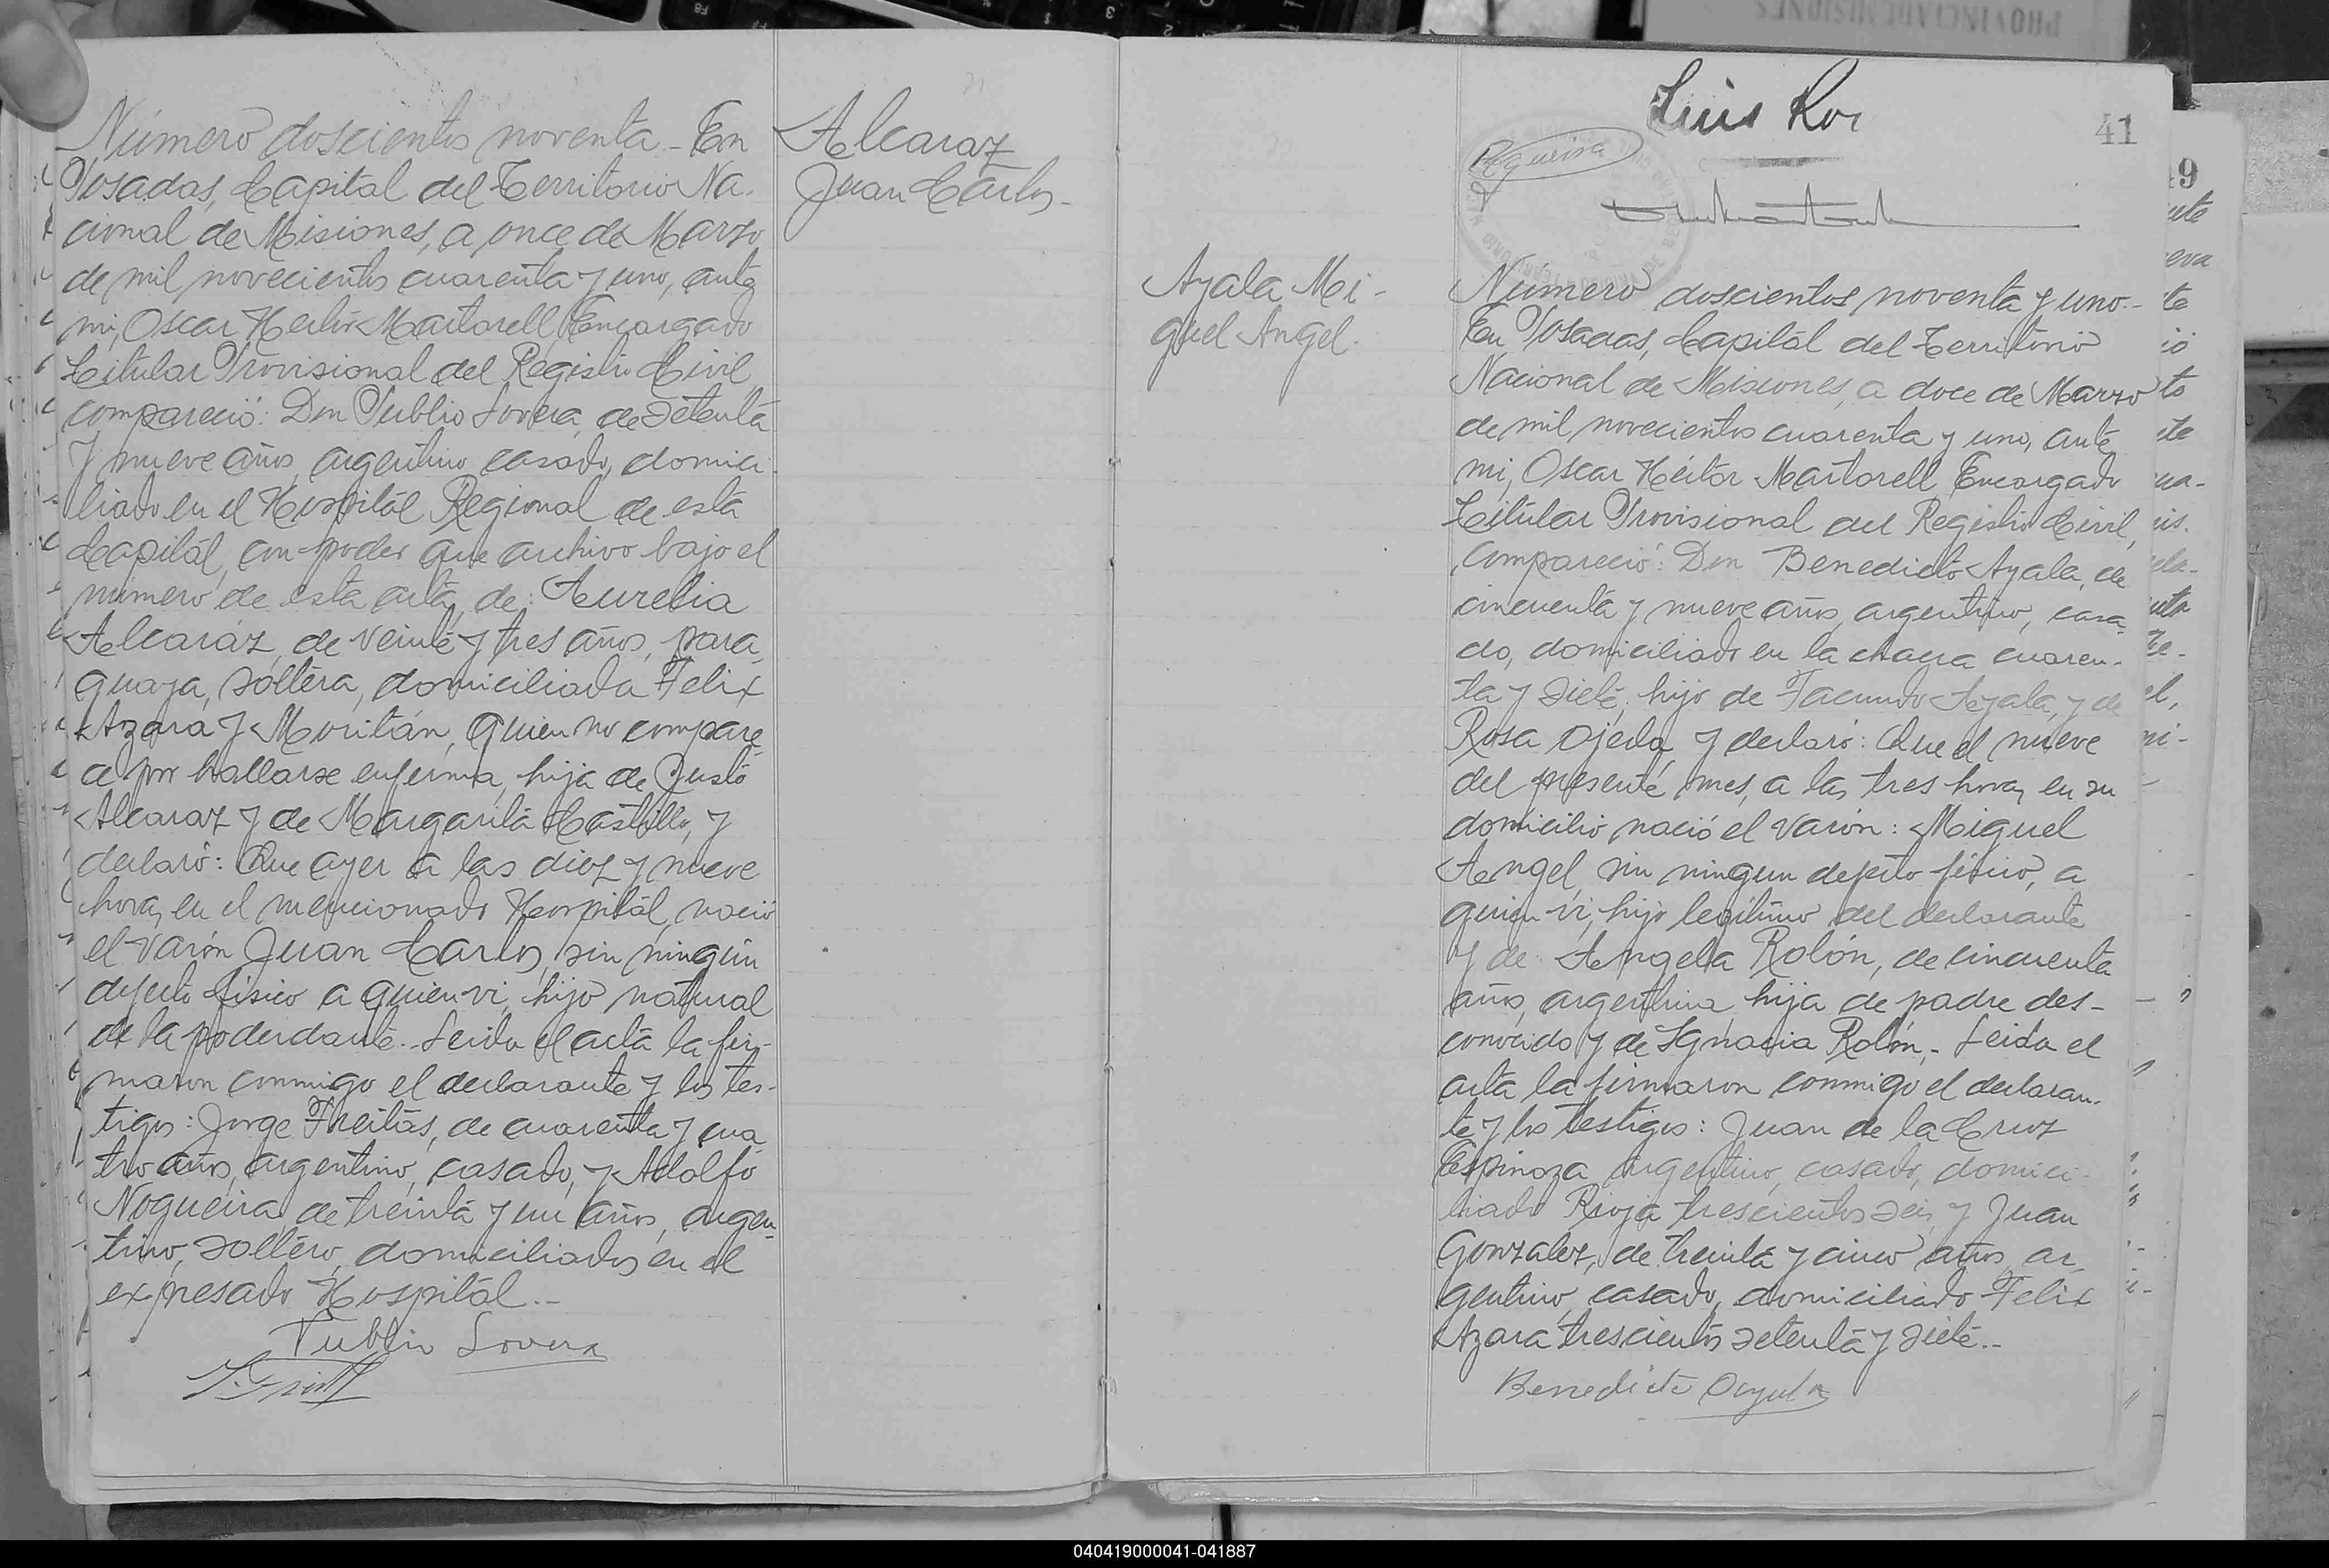 Número doscientos noventa - En
Posadas, Capital del Territorio Na-
cional de Misiones, a once de Marzo
de mil novecientos cuarenta y uno, ante
mi, Oscar Hector Martorell Encargado
Titular Provisional del Registro Civil,
compareció: Don Publio Lovera, de setenta
y nueve años, argentino casado, domici-
liado en el Hospital Regional de esta
Capital, con poder que archivo bajo el
número de esta acta, de: Aurelia
Alcaráz, de veinte y tres años, para-
guaya, soltera, domiciliada Felix
Azara y Moritán, quien no compare-
ce por hallarse enferma, hija de Justo
Alcaraz y de Margarita Castillo, y
declaró: Que ayer a las diez y nueve
horas, en el mencionado Hospital, nació
el varón Juan Carlos, sin ningún
defecto físico a quien vi, hijo natural
de la poderdante.- Leida el acta la fir-
maron conmigo el declarante y los tes-
tigos: Jorge Freitas, de cuarenta y cua-
tro años, argentino, casado, y Adolfo
Nogueira, de treinta y un años, argen-
tino, soltero, domiciliados en el
expresado Hospital.--
Publio Lovera
Alcaraz
Juan Carlos-
Luis Ro
41
Nogueira
Ayala Mi-
guel Angel.
Número doscientos noventa y uno.-
En Posadas, Capital del Territorio
Nacional de Misiones, a doce de Marzo
de mil novecientos cuarenta y uno, ante
mi, Oscar Héctor Martorell Encargado
Titular Provisional del Registro Civil,
compareció: Don Benedicto Ayala, de
cincuenta y nueve años, argentino, casa-
do, domiciliado en la chacra cuaren-
ta y siete, hijo de Facundo Ayala, y de
Rosa Ojeda, y declaró: Que el nueve
del presente mes, a las tres horas, en su
domicilio nació el varón: Miguel
Angel, sin ningun defecto físico, a
quien vi, hijo legítimo del declarante
y de Angela Rolón, de cincuenta
años, argentina hija de padre des-
conocido y de Ignacia Rolón.- Leida el
acta la firmaron conmigo el declaran-
te y los testigos: Juan de la Cruz
Espinoza argentino, casado, domici-
liado Rioja trescientos seis, y Juan
Gonzalez, de treinta y cinco años, ar-
gentino, casado, domiciliado Felix
Azara trescientos setenta y siete.--
Benedicto Ayala
040419000041-041887